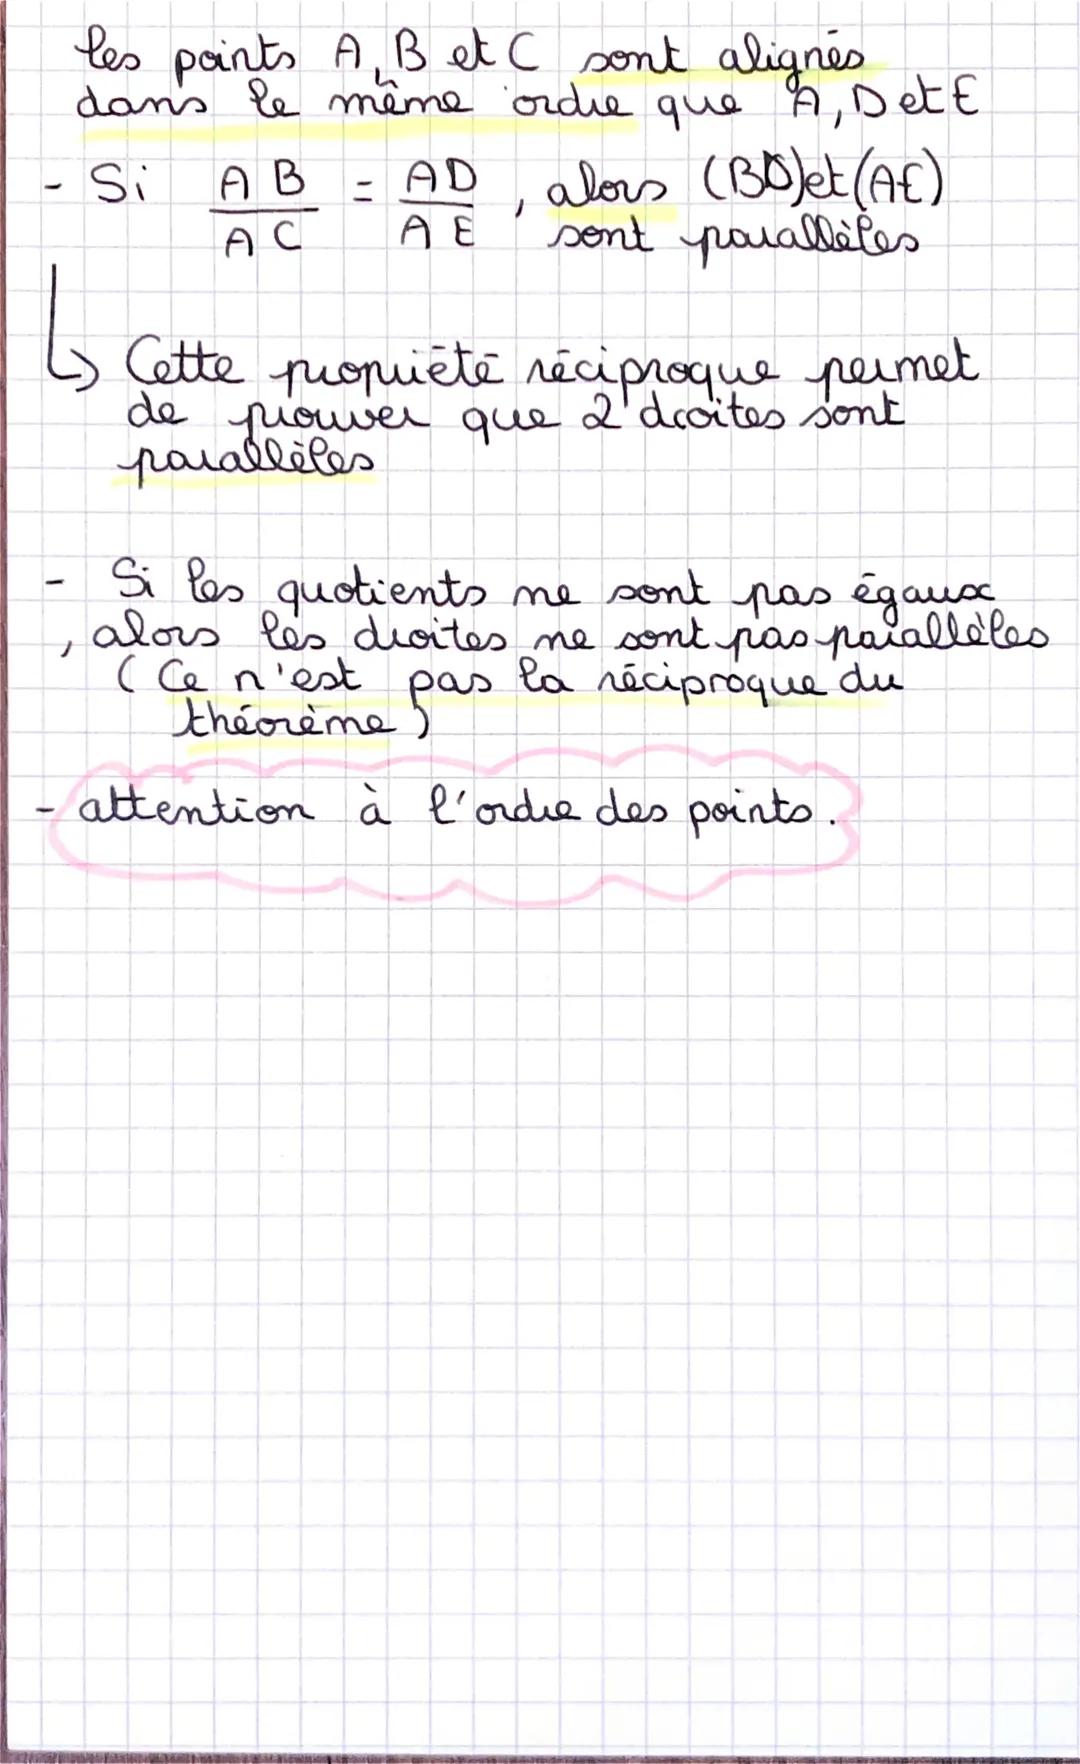 les points A, B et C sont alignés
dans le même ordre que A, D et E
- Si AB/AC = AD/AE, alors (BD) et (AE)
sont parallèles
↳ Cette propriété réciproque permet
de prouver que 2 droites sont
parallèles
- Si les quotients ne sont pas égaux
, alors les droites ne sont pas parallèles
(Ce n'est pas la réciproque du
théorème)
- attention à l'ordre des points.